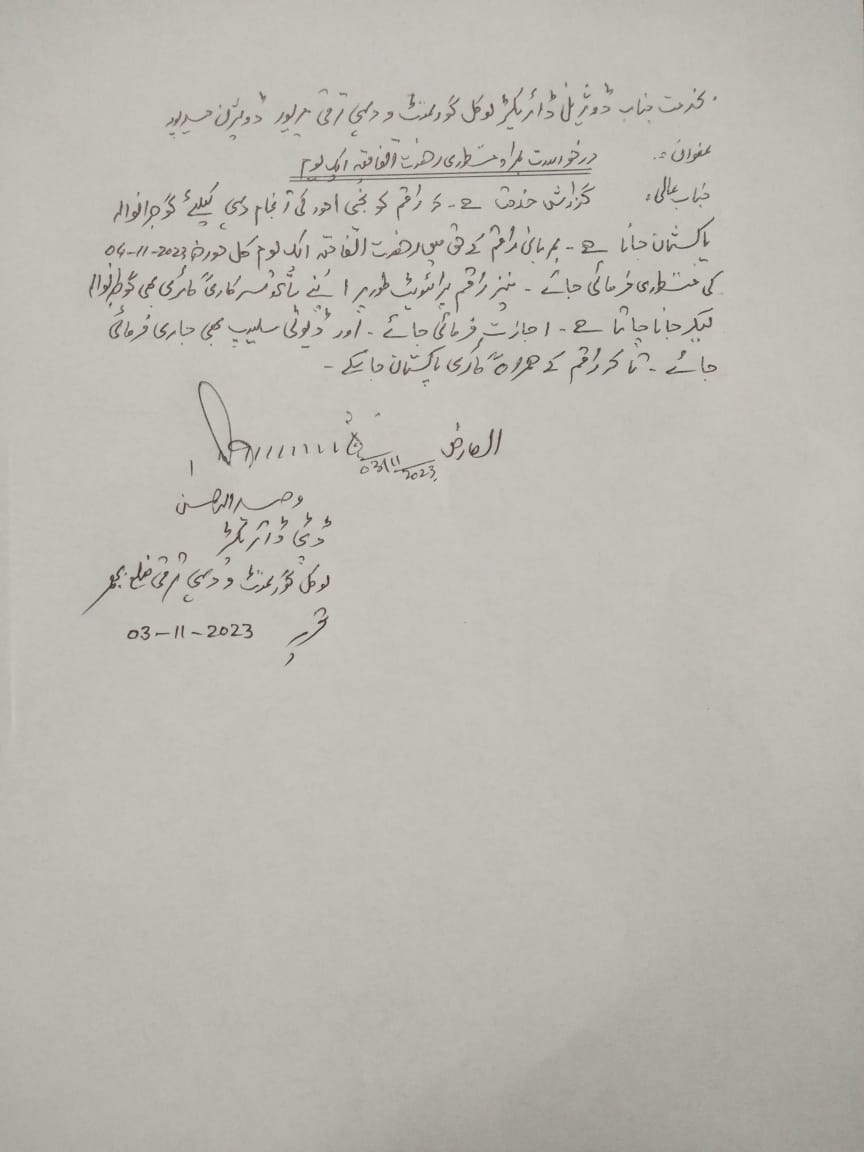 بخدمت جناب ڈویژنل ڈائریکٹر لوکل گورنمنٹ و دیہی ترقی میرپور ڈویژن میرپور
عنوان:۔ درخواست بمراد منظوری رخصت اتفاقیہ ایک یوم
جناب عالی: گزارش خدمت ہے ۔ کہ راقم کو نجی امور کی انجام دہی کیلئے گوجرانوالہ
پاکستان جانا ہے ۔ مہربانی راقم کے حق میں رخصت اتفاقیہ ایک یوم کل مورخہ 04-11-2023
کی منظوری فرمائی جائے ۔ نیز راقم پرائیویٹ طور پر اپنے سرکاری گاڑی بھی گوجرانوالہ
لیکر جانا چاہتا ہے ۔ اجازت فرمائی جائے ۔ اور ڈیوٹی سلیپ بھی جاری فرمائی
جائے ۔ تاکہ راقم کے ہمراہ گاڑی پاکستان جا سکے ۔
العارض
03/11/2023
وحید الحسن
ڈپٹی ڈائریکٹر
لوکل گورنمنٹ و دیہی ترقی ضلع بھمبر
تحریر 03-11-2023